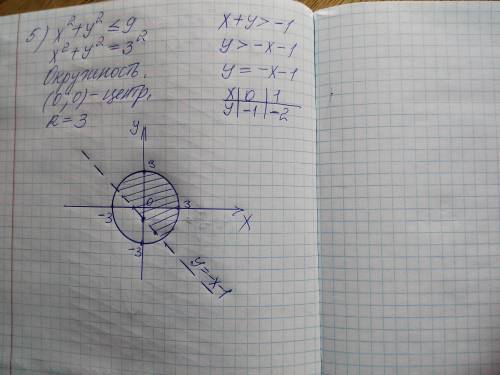 5) x² + y² ≤ 9
x² + y² = 3²
Окружность.
(0; 0) - центр.
R = 3
x + y > -1
y > -x - 1
y = -x - 1
x | 0 | 1
y | -1 | -2
y
3
0
-3
3
x
-3
y = -x-1